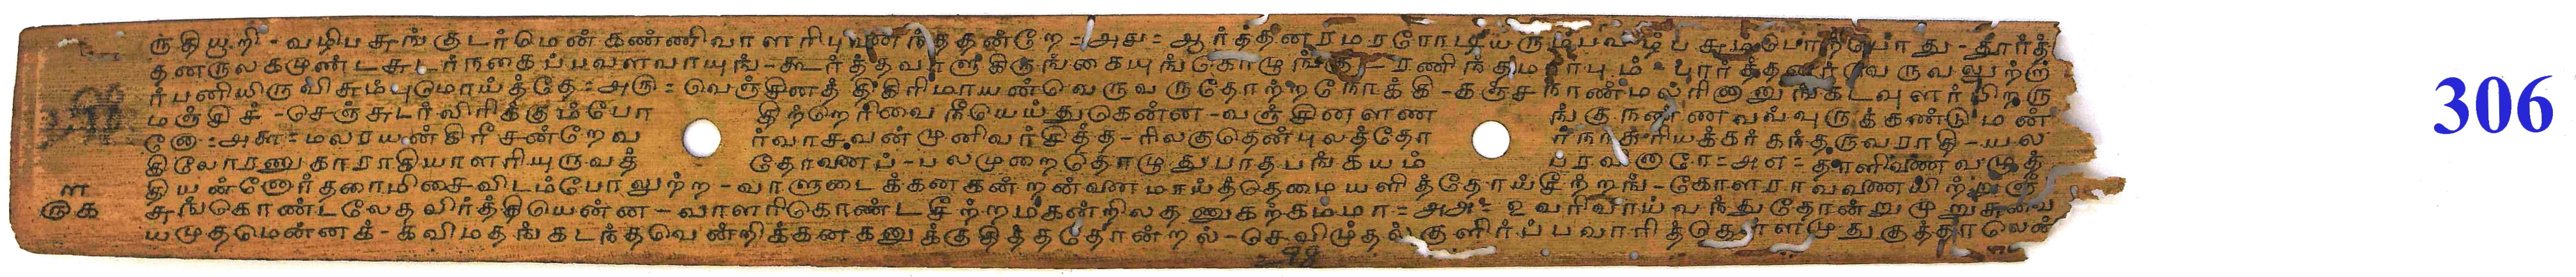 ந்தியூறி - வழிபசுங்குடர்மென் கண்ணிவாளரிபுனைந்ததன்றே = அச = ஆர்த்தினரமரரோடியரும்பவழ்ப
தனருலகமுண்டசுடர்நகைப்பவளவாயுங் - கூர்த்தவாளுகிருங்கையுங்கொழுங் ரணிந்தமார்பும் - பார்த்தனர்வெருவலுற்ற
ர்பனியிருவிசும்புமொய்த்தே = அரு = வெஞ்சினத் திகிரிமாயண்வெருவருதோற்றநோக்கி - கஞ்சநாண்மலரினானுங்கடவுளர்பிறரு
மஞ்சிச் - செஞ்சுடர்விரிக்கும்போ திற்றெரிவை நீயெய்துகென்ன - வஞ்சினளண ங்குநண்ணவவ்வுருக்கண்டு மன்
னோ = அசு = மலரயன்கிரீசன்றேவ ர்வாசவன்முனிவர்சித்த - ரிலகுதென்புலத்தோ ர்நந்தரியக்கர்கந்தருவராதி - யல
கிலோரணுகாராதியாளரியுருவத் தோவணப் - பலமுறைதொழுதுபாதபங்கயம் பரவினாரே = அஎ =
தியன்னோர்தலைமிசைவிடம்போலுற்ற - வாளுடைக்கனகன்றன்வண மாய்த்தெமையளித்தோய்சீற்றங் - கோளரா
சுங்கொண்டலேதவிர்த்தியென்ன - வாளரிகொண்டசீற்றமகன்றிலதணுகற்கம்மா = அஅ = உவரிவாய்வந்துதோன்றுமுறுசுவை
யமுதமென்னக் - கவிமதங்கடந்தவென்றிக்கனகனுக்குதித்ததோன்றல் - செவிமுதல்குளிர்ப்பவாரித்தெள்ளமுதுகுத்தாலென்
ள
ருக
306